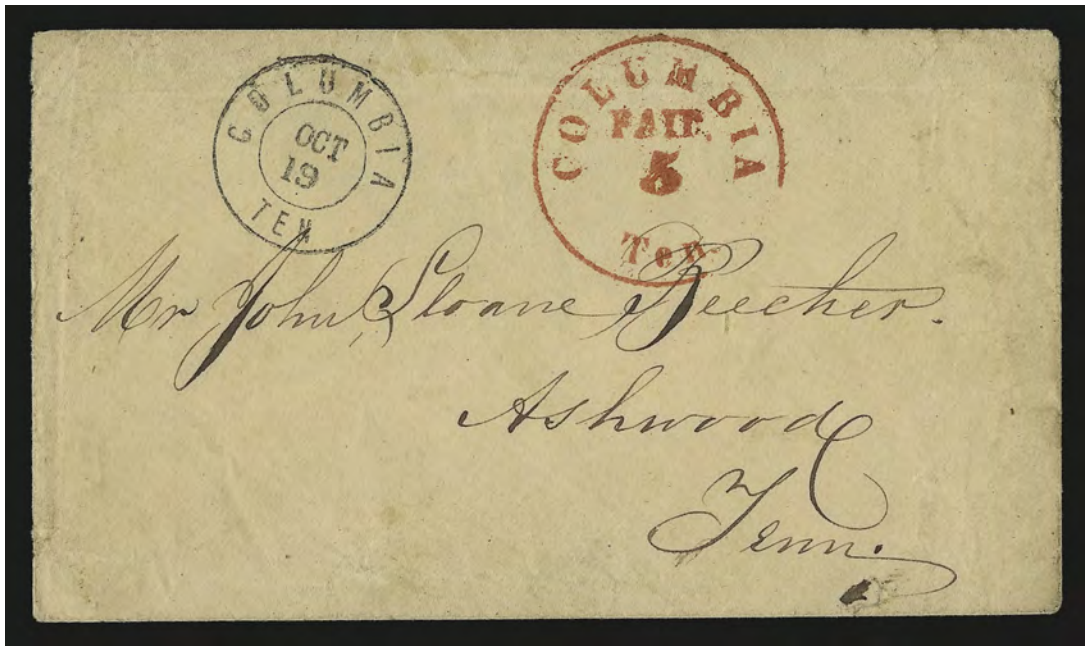 COLUMBIA
OCT
19
TEN
COLUMBIA
PAID
5
Ten.
Mr John Sloane Beecher.
Ashwood
Tenn.